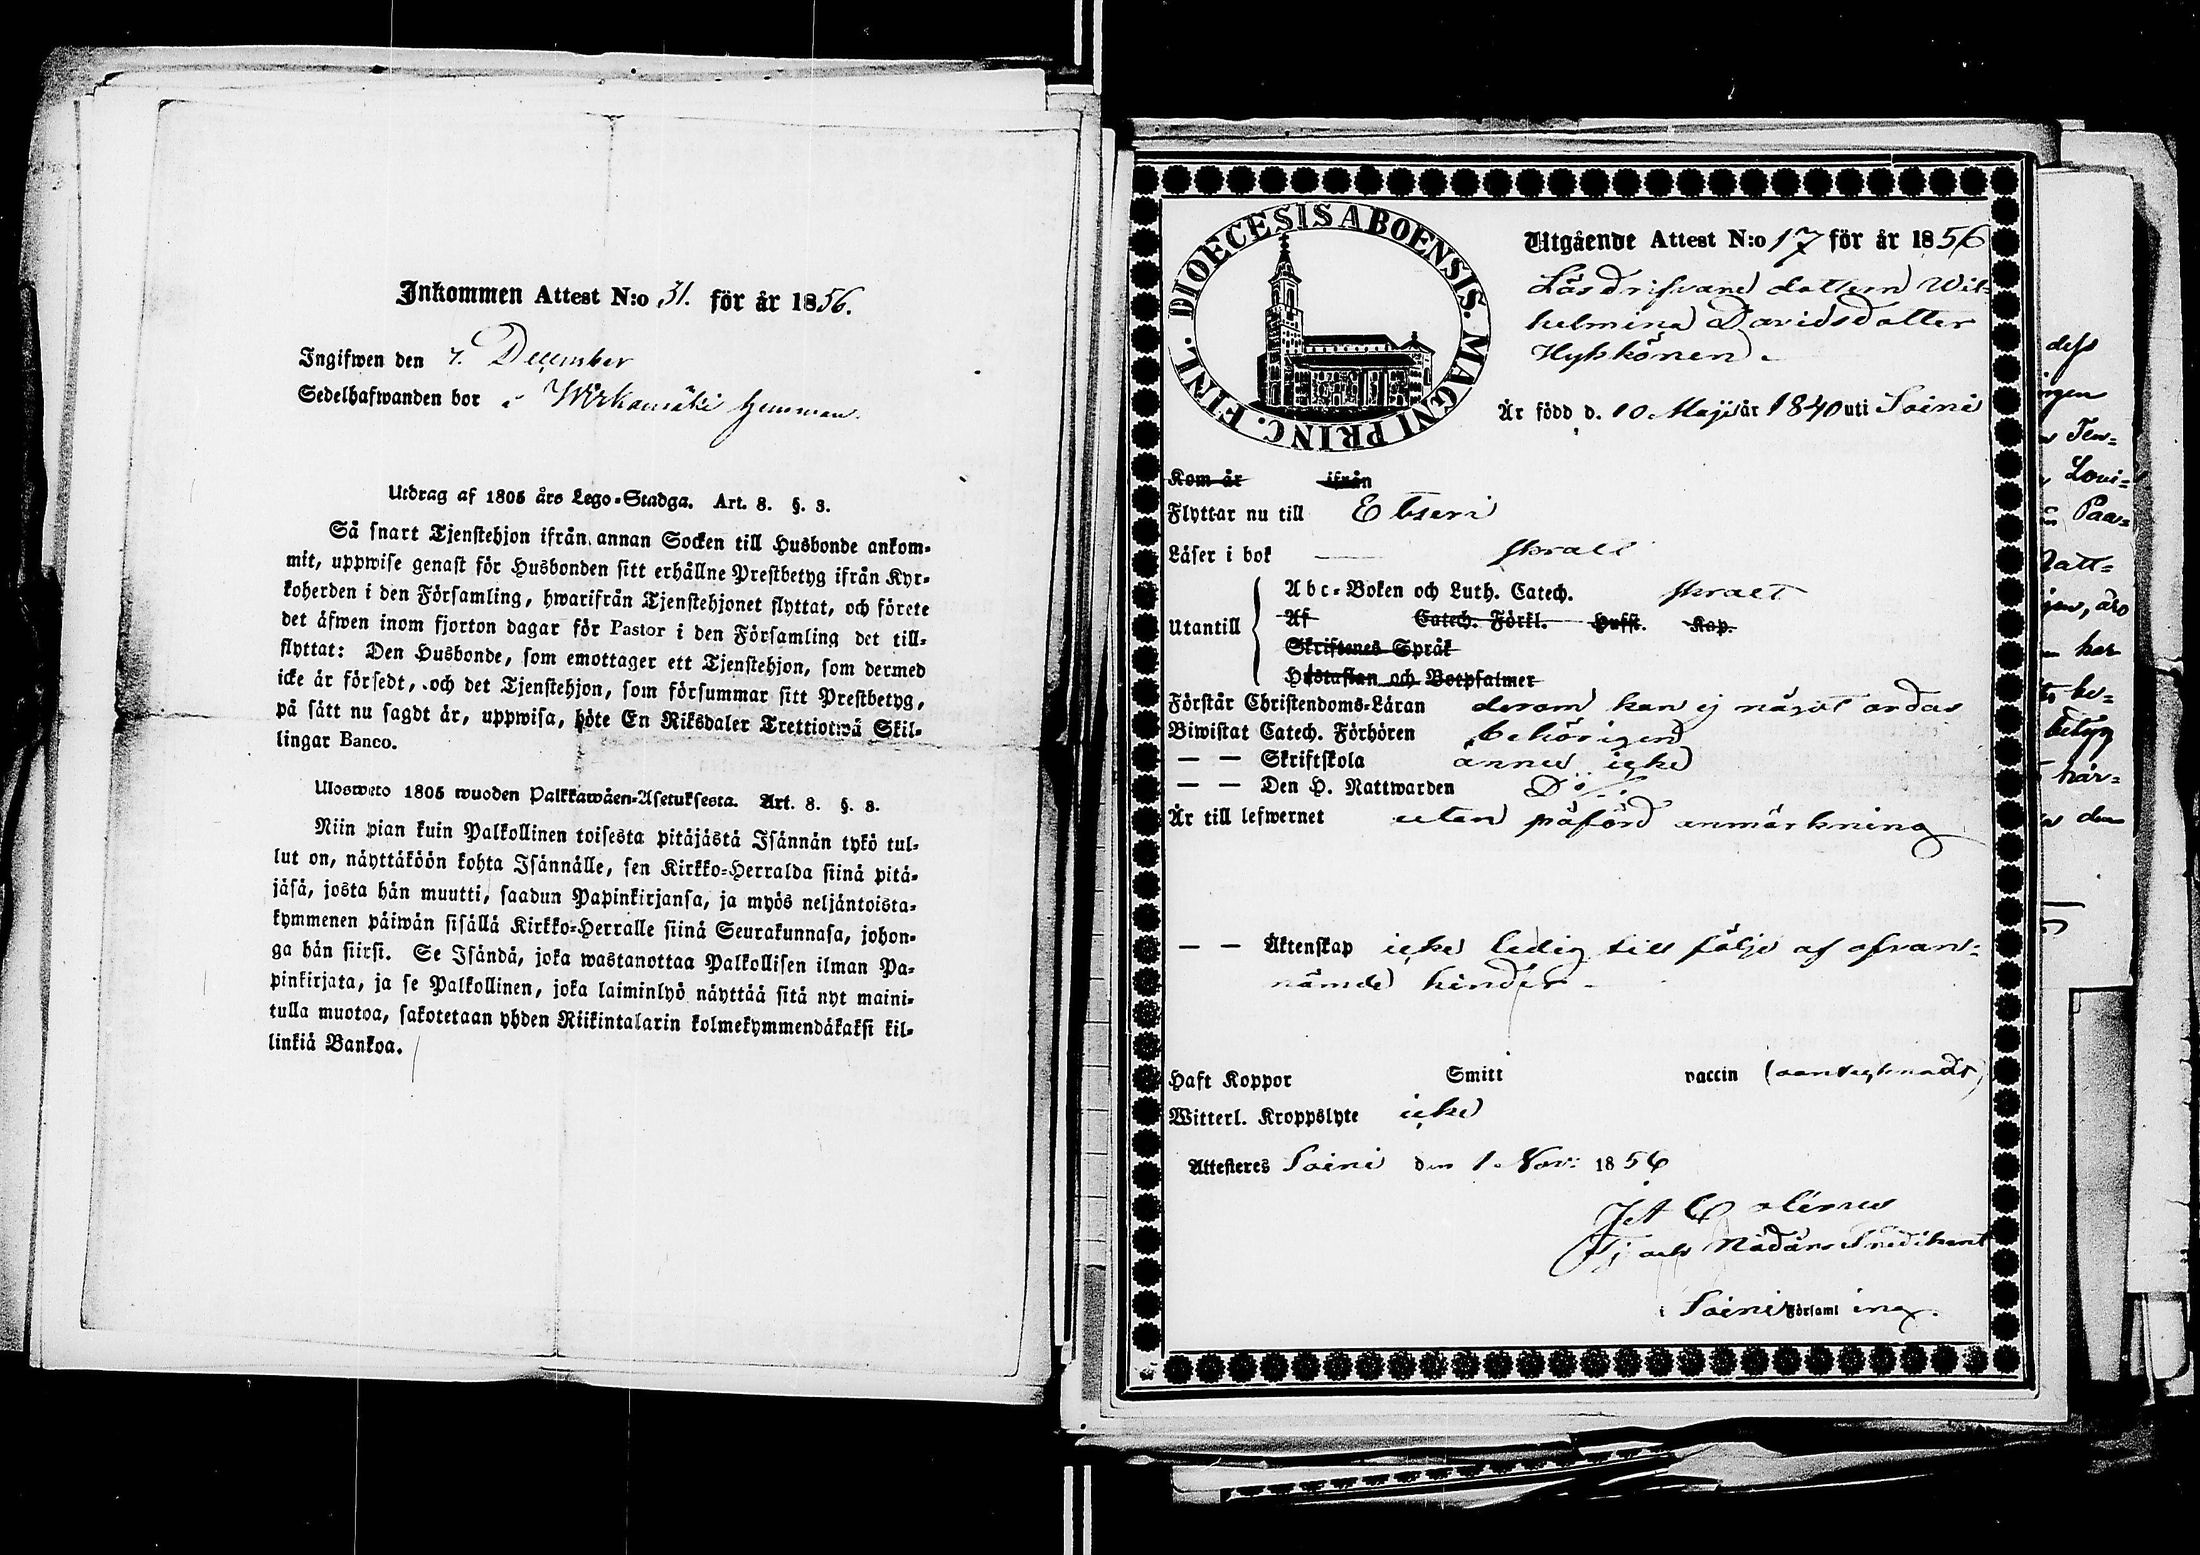 Inkommen Attest N:o 31. för år 1856.
Ingifwen den 7. December
Sedelhafwanden bor i Wirkamäki hemman.
Utdrag af 1805 års Lego-Stadga. Art. 8. §. 3.
Så snart Tjenstehjon ifrån annan Socken till Husbonde ankom-
mit, uppwise genast för Husbonden sitt erhållne Prestbetyg ifrån Kyr-
koherden i den Församling, hwarifrån Tjenstehjonet flyttat, och förete
det äfwen inom fjorton dagar för Pastor i den Församling det till-
flyttat: Den Husbonde, som emottager ett Tjenstehjon, som dermed
icke är försedt, och det Tjenstehjon, som försummar sitt Prestbetyg,
på sätt nu sagdt är, uppwisa, böte En Riksdaler Trettiotwå Skil-
lingar Banco.
Ulosweto 1805 wuoden Palkkawäen-Asetuksesta. Art. 8. §. 3.
Niin pian kuin Palkollinen toisesta pitäjästä Isännän tykö tul-
lut on, näyttäköön kohta Isännälle, sen Kirkko-Herralda siinä pitä-
jäsä, josta hän muutti, saadun Papinkirjansa, ja myös neljäntoista-
kymmenen päiwän sisällä Kirkko-Herralle siinä Seurakunnasa, johon-
ga hän siirsi. Se Isändä, joka wastanottaa Palkollisen ilman Pa-
pinkirjata, ja se Palkollinen, joka laiminlyö näyttää sitä nyt maini-
tulla muotoa, sakotetaan yhden Riikintalarin kolmekymmendäkaksi kil-
linkiä Bankoa.
DIOECESIS ABOENSIS. MAGNI PRINC. FINL.
Utgående Attest N:o 17 för år 1856
Lösdrifvare dottern Wil-
helmina Davidsdotter
Hykkönen.
Är född d. 10 Maji år 1840 uti Soini
Kom år ifrån
Flyttar nu till Etseri
Läser i bok svält
Abc-Boken och Luth. Catech.
Utantill Af Catech. Förkl. Hufst. Kap.
Skriftenes Språk
Hustaflan och Botpsalmer
Förstår Christendoms-Läran derom kan ej något ordas
Biwistat Catech. Förhören behörigen
— — Skriftskola ännu icke
— — Den H. Nattwarden D:o
Är till lefwernet utan påförd anmärkning
— — Äktenskap icke ledig till följe af ofvan-
nämde hinder
Haft Koppor Smitt vaccin
Witterl. Kroppslyte icke
Attesteres Soini den 1 Nov: 1856
Tj och Nådårs Predikant
i Soini Församl ing.